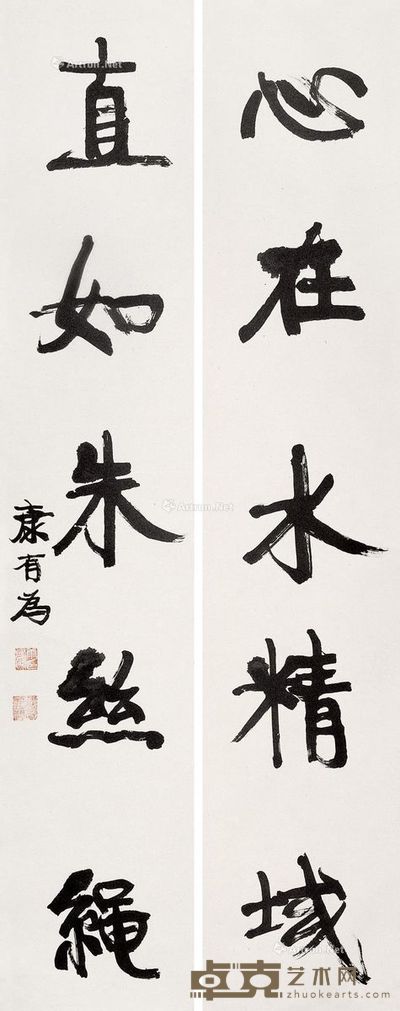 心在水精域
直如朱絲繩
康有為
Artron.Net
Artron.Net
Artron.Net
Artron.Net
卓克艺术网
www.zhuokearts.com